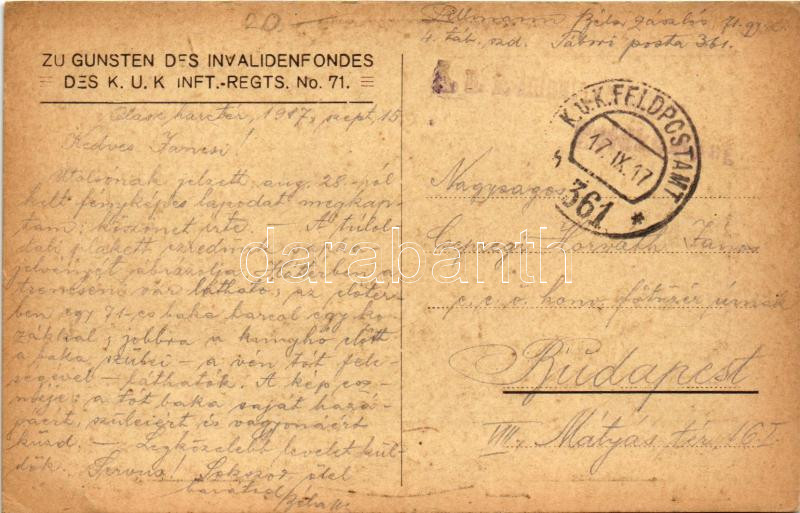 20.
Béla zászlós, 71. gy. e.
4. táb. szd. Tábori posta 361.
ZU GUNSTEN DES INVALIDENFONDES
DES K. U. K INFT.-REGTS. No. 71.
K.U.K. FELDPOSTAMT
17. IX. 17
361
*
Olasz harctér, 1917. szept. 15.
Kedves Jancsi!
Utolsónak jelzett, aug. 28-ról
kelt fényképes lapodat megkap-
tam; köszönet érte. — A túlol-
dali plakett ezredünk
jelvényét ábrázolja. Háterben a
trencséni vár látható; az előtér-
ben egy 71-es baka harcol egy ko-
zákkal; jobbra a kunyhó előtt
a baka szülei — a vén tót fele-
ségivel — láthatók. A kép esz-
méje: a tót baka saját hazá-
jáért, szüleiért és vagyonáért
küzd. — Legközelebb levelet kül-
dök. Servus! Sokszor ölel
barátod Béla
Nagyságos
Horváth János
c. e. ö. honv. főtüzér úrnak
Budapest
VIII. Mátyás tér 16 I.
darabanth